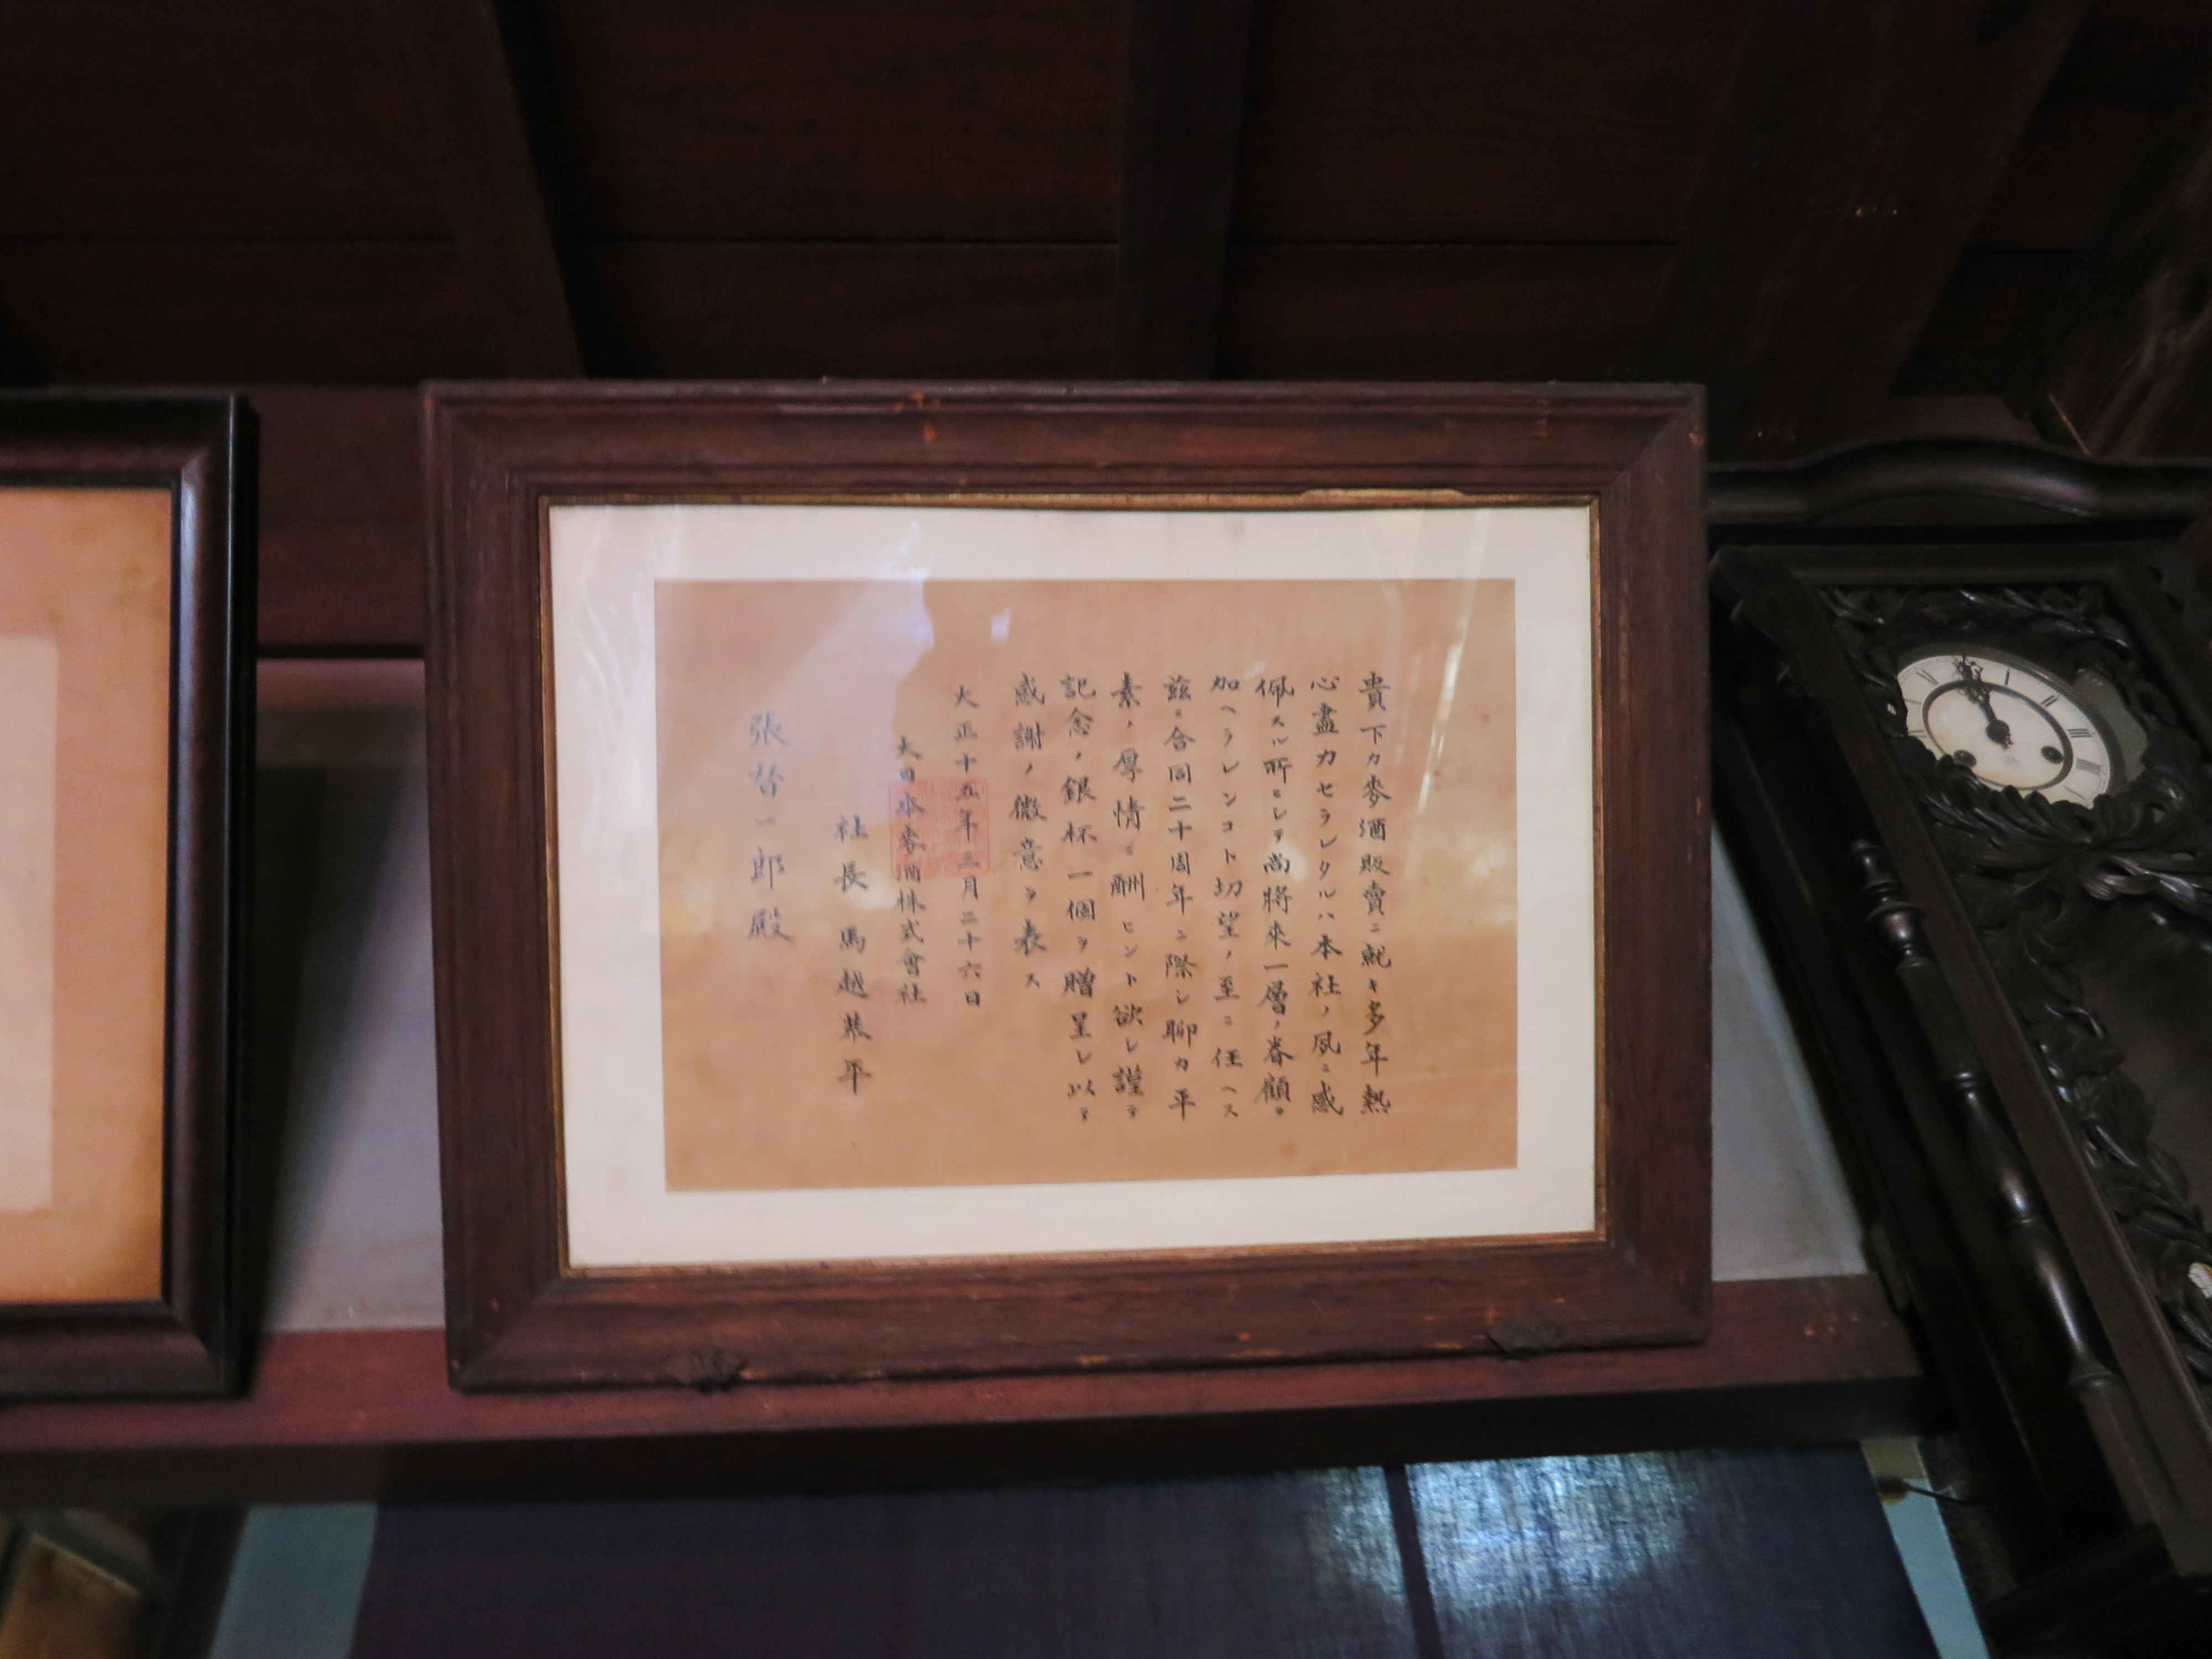 貴下カ麥酒販賣ニ就キ多年熱
心盡力セラレタルハ本社ノ夙ニ感
佩スル所ニシテ尚將來一層ノ眷顧ヲ
加ヘラレンコト切望ノ至ニ任ヘス
茲ニ合同二十周年ニ際シ聊カ平
素ノ厚情ニ酬ヒント欲シ謹テ
記念ノ銀杯一個ヲ贈呈シ以テ
感謝ノ微意ヲ表ス
大正十五年三月二十六日
大日本麥酒株式會社
社長 馬越恭平
張 一郎殿